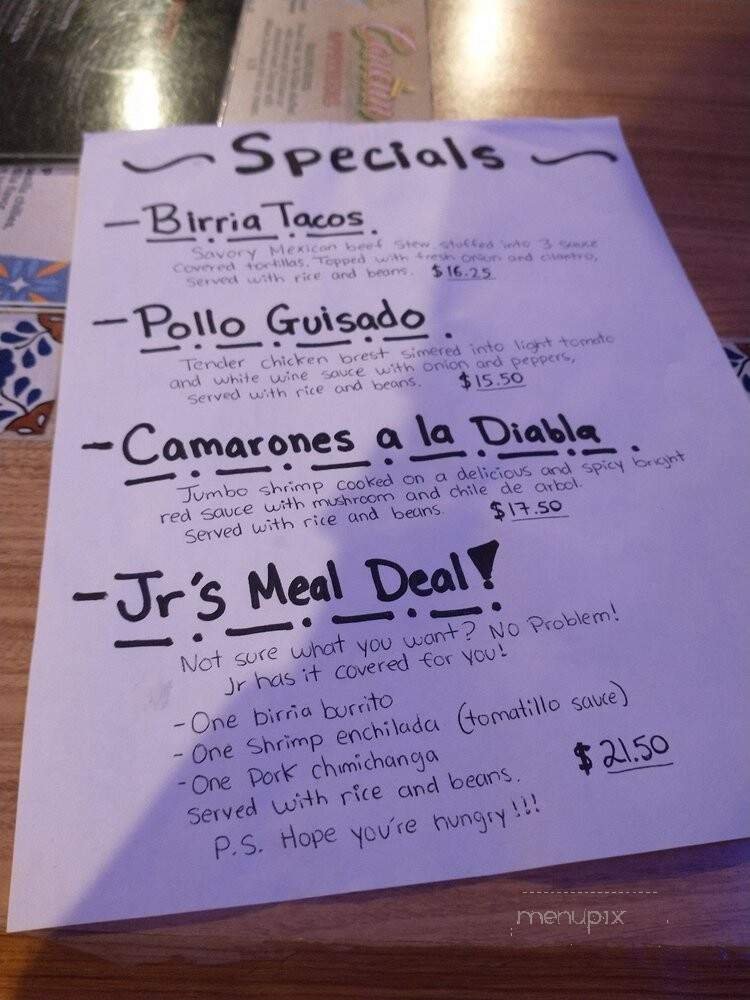 Cantina
APPETIZERS
~ Specials ~
- Birria Tacos.
Savory Mexican beef stew, stuffed into 3 sauce
covered tortillas. Topped with fresh onion and cilantro,
served with rice and beans. $16.25
- Pollo Guisado.
Tender chicken brest simered into light tomato
and white wine sauce with onion and peppers,
served with rice and beans. $15.50
- Camarones a la Diabla.
Jumbo shrimp cooked on a delicious and spicy bright
red sauce with mushroom and chile de arbol.
Served with rice and beans. $17.50
- Jr's Meal Deal!
Not sure what you want? No Problem!
Jr has it covered for you!
- One birria burrito
- One Shrimp enchilada (tomatillo sauce)
- One Pork chimichanga $21.50
Served with rice and beans.
P.S. Hope you're hungry!!!
menupix